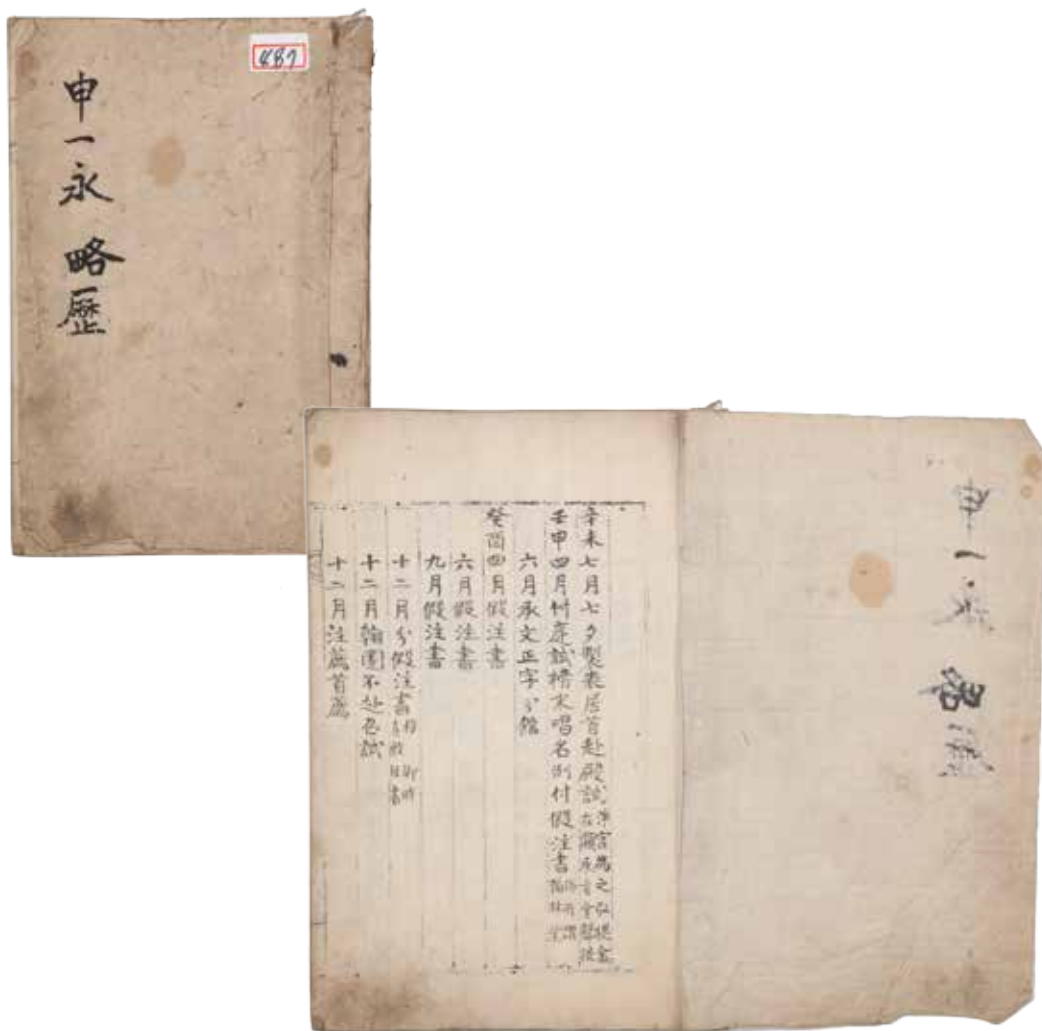 487
申一永 略歷
申一永 略歷
辛未七月七夕製表居首赴殿試
壬申四月付庭試榜末唱名例付假注書
六月承文正字分館
癸酉四月假注書
六月假注書
九月假注書
十二月分假注書
十二月翰圈不赴召試
十二月注薦首薦